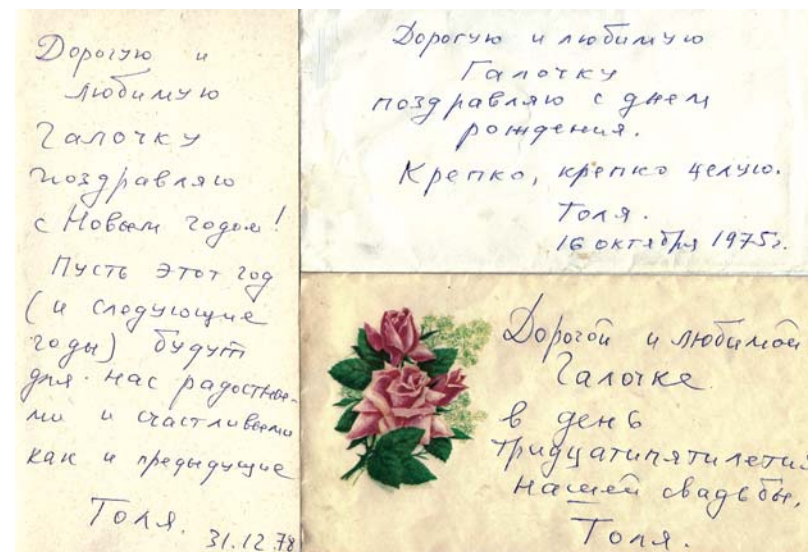 Дорогую и
любимую
Галочку
поздравляю
с Новым годом!
Пусть этот год
(и следующие
годы) будут
для нас радостны-
ми и счастливыми
как и предыдущие
Толя.
31.12.78
Дорогую и любимую
Галочку
поздравляю с днем
рождения.
Крепко, крепко целую.
Толя.
16 октября 1975г.
Дорогой и любимой
Галочке
в день
тридцатипятилетия
нашей свадьбы,
Толя.